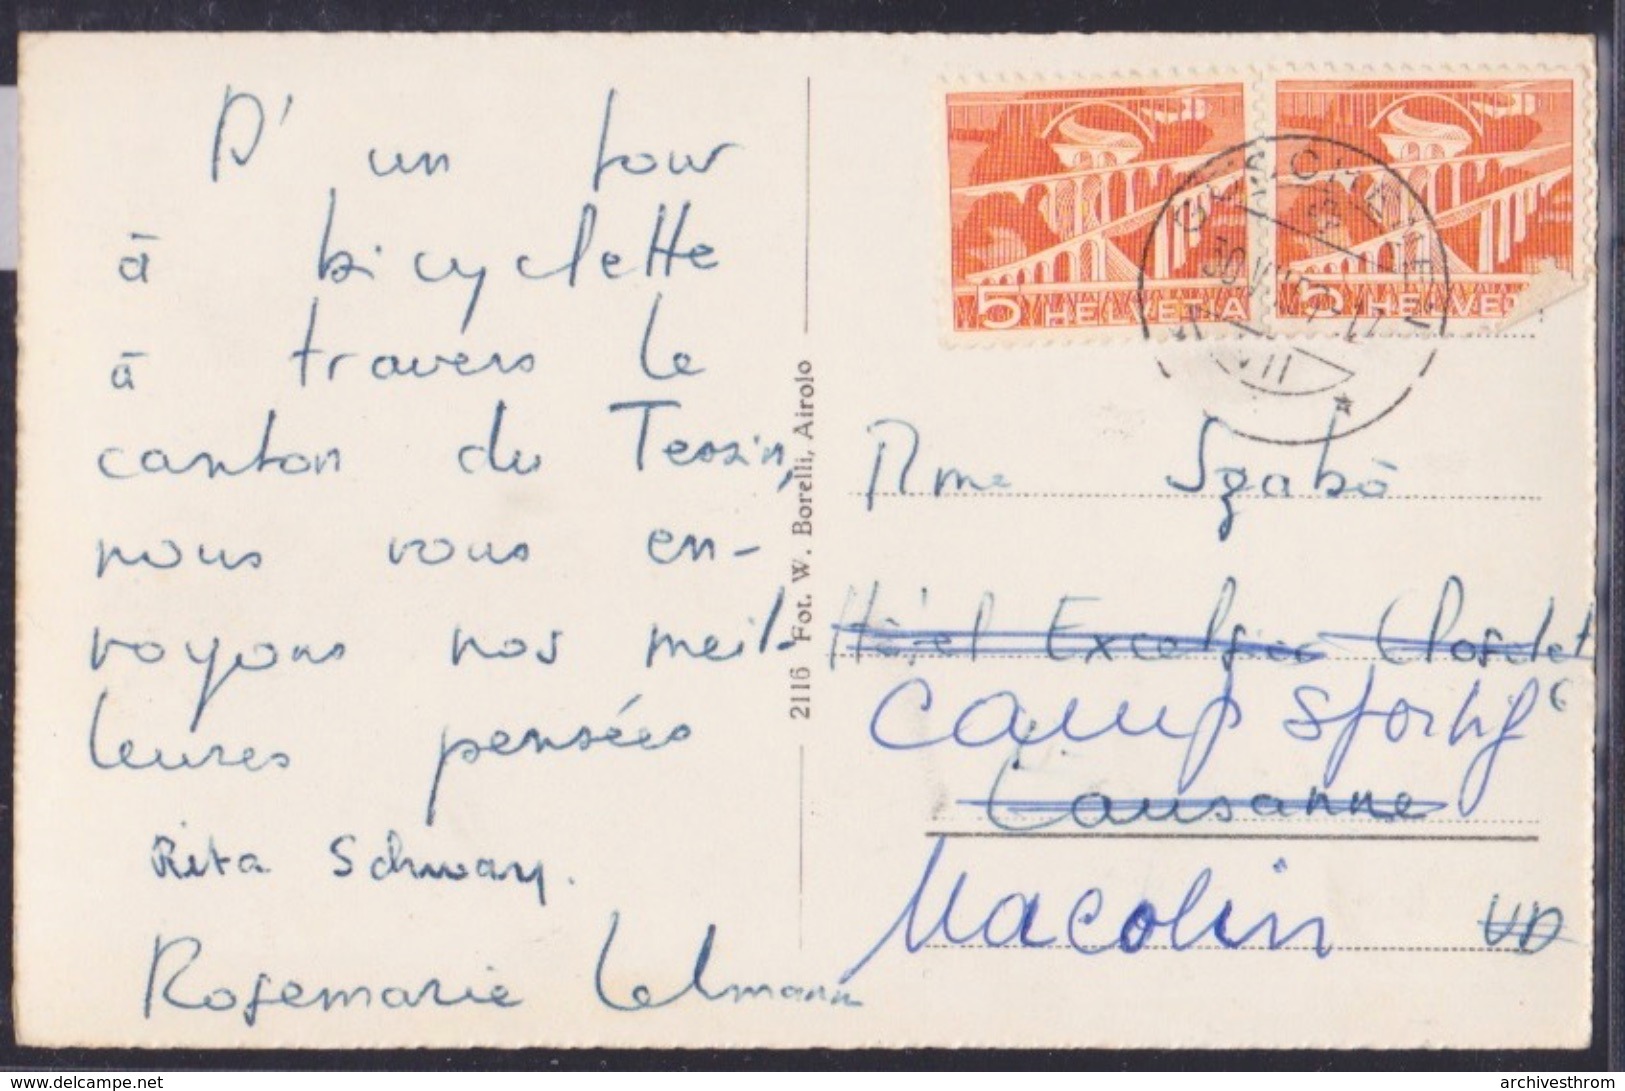 D'un tour
à bicyclette
à travers le
canton du Tessin,
nous vous en-
voyons nos meil-
leures pensées
Rita Schwarz.
Rosemarie Lehmann
2116 Fot. W. Borelli, Airolo
5 HELVETIA
5 HELVET
Mme Szabó
Hôtel Excelsior
Camp Sportif
Lausanne
Macolin
VD
www.delcampe.net
archivesthrom